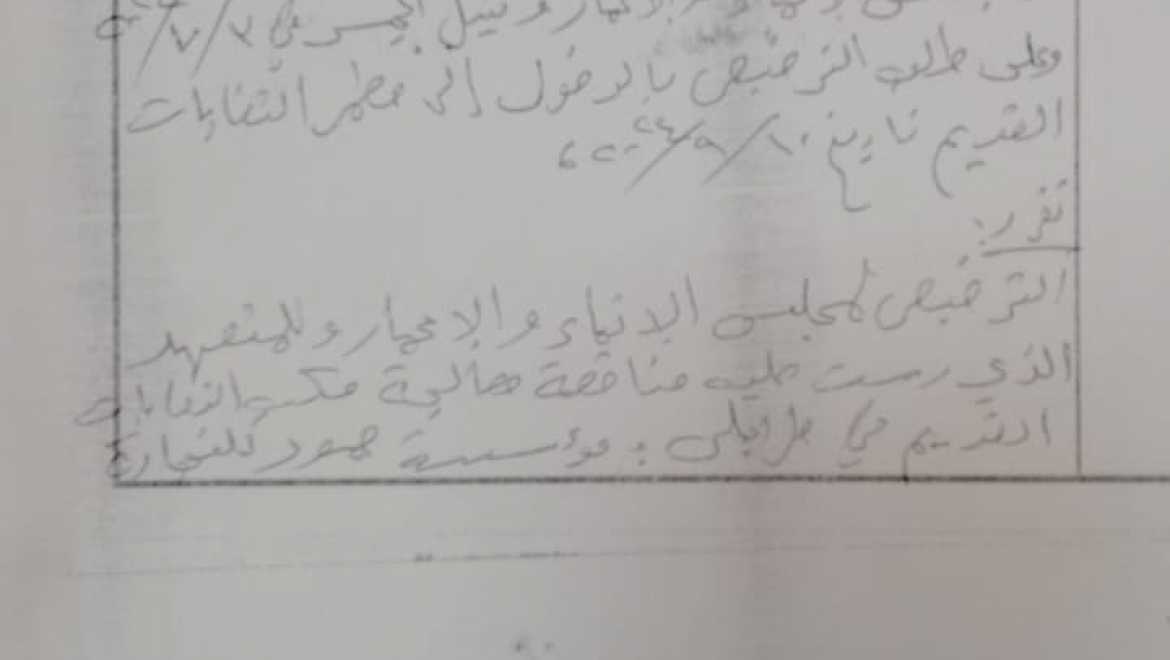 الإنماء والإعمار ونبيل الجسر في ٣/٧/
وعلى طلب الترخيص بالدخول إلى مطمر النفايات
القديم تاريخ ١٠/٩/٢٠٢٤،
تقرر:
الترخيص لمجلس الانماء والإعمار وللمتعهد
الذي رست عليه مناقصة معالجة مكب النفايات
القديم في طرابلس: مؤسسة حمود للتجارة